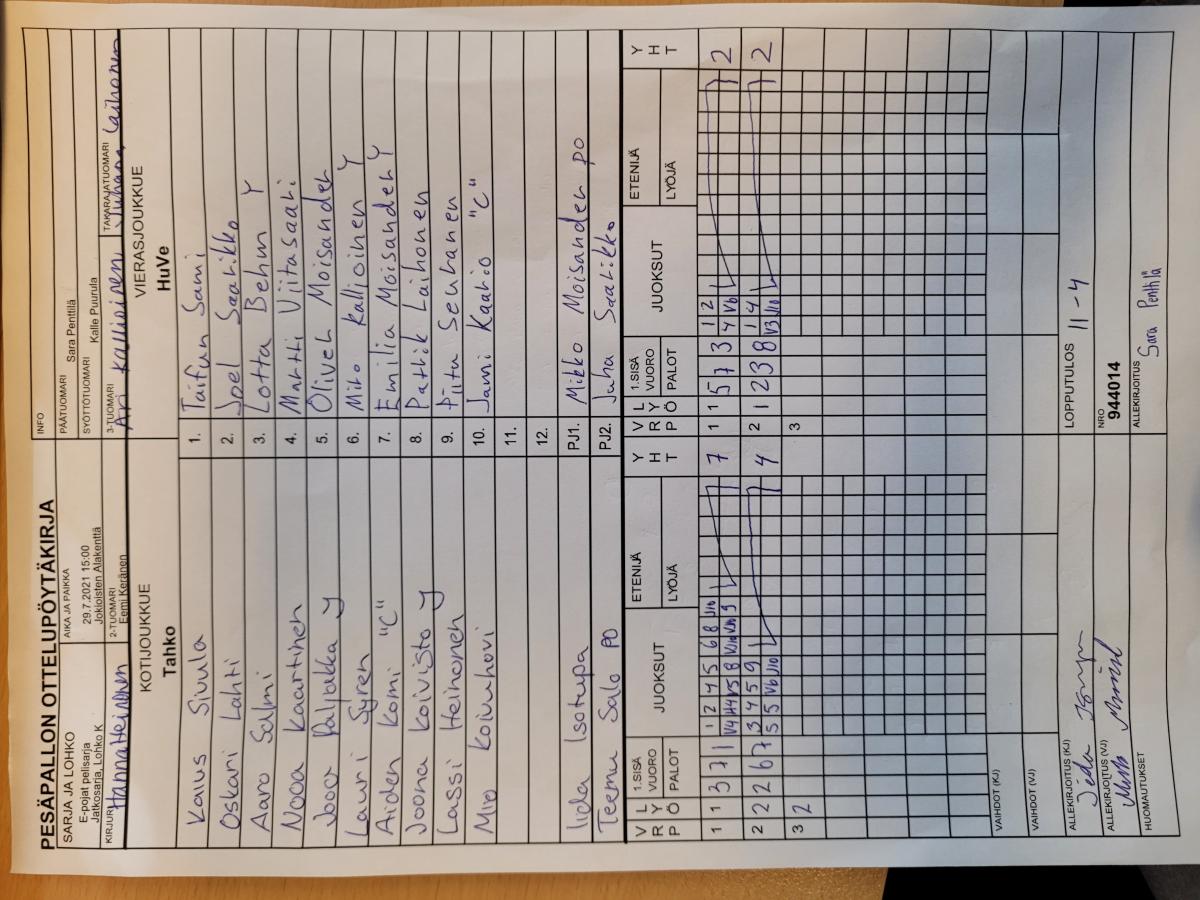 PESÄPALLON OTTELUPÖYTÄKIRJA
INFO
SARJA JA LOHKO
E-pojat pelisarja
Jatkosarja, Lohko K
AIKA JA PAIKKA
29.7.2021 15:00
Jokioisten Alakenttä
PÄÄTUOMARI
Sara Penttilä
SYÖTTÖTUOMARI
Kalle Puurula
KIRJURI Hanna Heinonen
2-TUOMARI
Eemi Keränen
3-TUOMARI
Ari Kallioinen
TAKARAJATUOMARI
Juhana Laihonen
KOTIJOUKKUE
Tahko
VIERASJOUKKUE
HuVe
Kaius Sivula 1. Taifun Sami
Oskari Lahti 2. Joel Saarikko
Aaro Salmi 3. Lotta Behm Y
Nooa Kaartinen 4. Martti Viitasaari
Joor Paljakka Y 5. Oliver Moisander
Lauri Syren 6. Miro Kallioinen Y
Aiden Komi "C" 7. Emilia Moisander Y
Joona Koivisto Y 8. Patrik Laihonen
Lassi Heinonen 9. Piitu Seuranen
Mio Koivuhovi 10. Jami Kaario "C"
11.
12.
Iida Isotupa PJ1. Mikko Moisander PO
Teemu Salo PO PJ2. Juha Saarikko
V R P L Y Ö 1.SISÄ VUORO PALOT JUOKSUT ETENIJÄ LYÖJÄ Y H T V R P L Y Ö 1.SISÄ VUORO PALOT JUOKSUT ETENIJÄ LYÖJÄ Y H T
1 2 4 5 6 8 J10 1 2
1 1 3 7 1 V4 H4 V5 8 V10 V10 9 7 1 1 5 7 3 4 Vb 2
3 4 5 9 1 4
2 2 2 6 7 5 5 Vb J10 4 2 1 2 3 8 V3 J10 2
3 2 3
VAIHDOT (KJ)
VAIHDOT (VJ)
ALLEKIRJOITUS (KJ)
LOPPUTULOS 11-4
ALLEKIRJOITUS (VJ)
NRO
944014
HUOMAUTUKSET
ALLEKIRJOITUS
Sara Penttilä